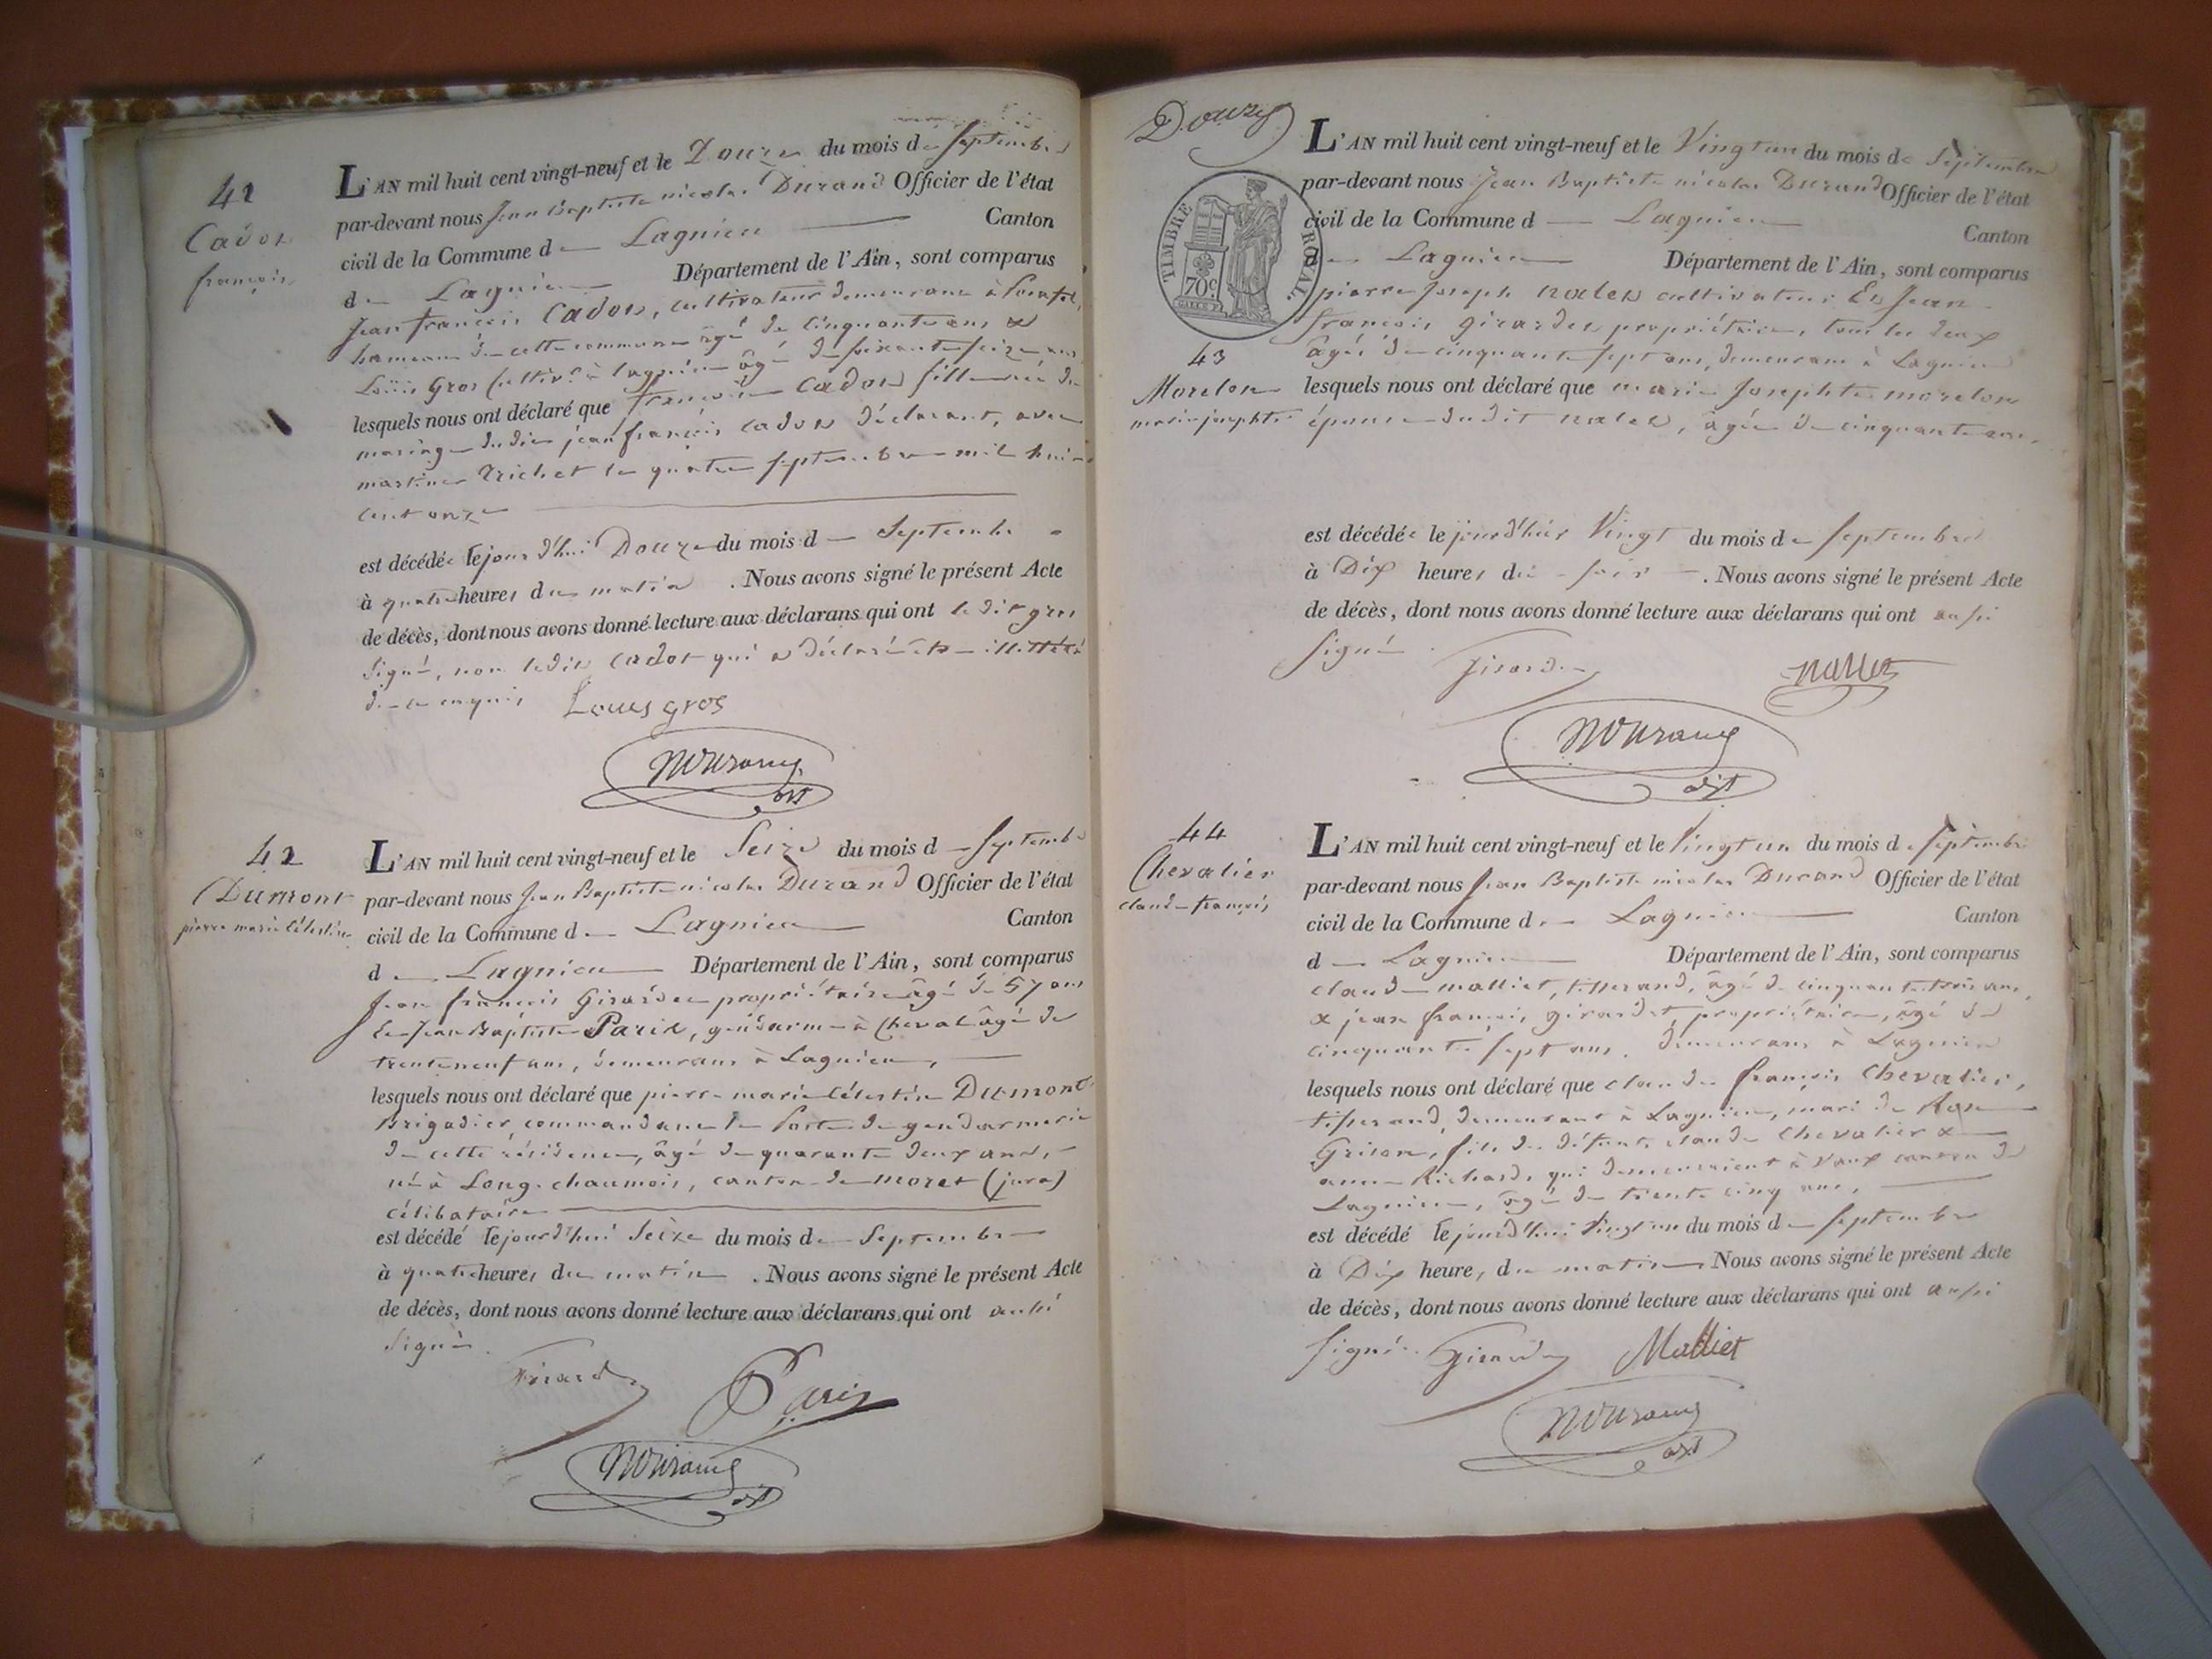 41
Cadot
françoise
L'AN mil huit cent vingt-neuf et le Douze du mois de Septembre
par-devant nous Jean Baptiste nicolas Durand Officier de l'état
civil de la Commune de Lagnieu Canton
de Lagnieu Département de l'Ain, sont comparus
Jean françois Cadot, cultivateur demeurant à
hameau de cette commune âgé de cinquante ans &
Louis Gros Cultivr. à lagnieu âgé de soixante seize ans
lesquels nous ont déclaré que françoise Cadot fille née du
mariage dudit jean françois Cadot déclarant, avec
martine trichet le quatre septembre mil huit
cent onze
est décédée le jourd'hui Douze du mois de Septembre
à quatre heures du matin. Nous avons signé le présent Acte
de décès, dont nous avons donné lecture aux déclarans qui ont ledit gros
signé, non ledit Cadot qui a déclaré être illittéré
de ce enquis Louis gros
NDurand
adjt
42
Dumont
pierre marie Célestin
L'AN mil huit cent vingt-neuf et le Seize du mois de Septembre
par-devant nous Jean Baptiste nicolas Durand Officier de l'état
civil de la Commune de Lagnieu Canton
de Lagnieu Département de l'Ain, sont comparus
Jean françois Girardet propriétaire âgé de 57 ans
Et Jean Baptiste Paris, gendarme à Cheval âgé de
trente neuf ans, demeurans à Lagnieu,
lesquels nous ont déclaré que pierre marie Célestin Dumont
Brigadier, commandant le Poste de gendarmerie
de cette résidence, âgé de quarante deux ans,
né à Long-chaumois, canton de moret (jura)
célibataire
est décédé le jourd'hui Seize du mois de Septembre
à quatre heures du matin. Nous avons signé le présent Acte
de décès, dont nous avons donné lecture aux déclarans qui ont aussi
signé.
Girardet Paris
NDurand
adjt
Douze
TIMBRE ROYAL
70c.
43
Morelon
marie josephte
L'AN mil huit cent vingt-neuf et le Vingt un du mois de Septembre
par-devant nous Jean Baptiste nicolas Durand Officier de l'état
civil de la Commune d Lagnieu Canton
de Lagnieu Département de l'Ain, sont comparus
pierre Joseph nalet cultivateur Et Jean
françois girardet propriétaire, tous les deux
âgés de cinquante sept ans, demeurans à Lagnieu
lesquels nous ont déclaré que marie Josephte morelon
épouse dudit nalet, âgée de cinquante ans,
est décédée le jourd'hier Vingt du mois de septembre
à Dix heures du soir. Nous avons signé le présent Acte
de décès, dont nous avons donné lecture aux déclarans qui ont aussi
signé
Girardet nallet
NDurand
adjt
44
Chevalier
claude françois
L'AN mil huit cent vingt-neuf et le Vingt un du mois de Septembre
par-devant nous Jean Baptiste nicolas Durand Officier de l'état
civil de la Commune de Lagnieu Canton
d Lagnieu Département de l'Ain, sont comparus
claude malliet, tisserand, âgé de cinquante trois ans,
& jean françois girardet, propriétaire, âgé de
cinquante sept ans, demeurans à Lagnieu
lesquels nous ont déclaré que claude françois Chevalier,
tisserand, demeurant à Lagnieu, mari de Rose
Grison, fils de défunts claude Chevalier &
anne Richard, qui demeuroient à Vaux canton de
Lagnieu, âgé de trente cinq ans,
est décédé le jourd'hui Vingt un du mois de septembre
à Dix heure, du matin Nous avons signé le présent Acte
de décès, dont nous avons donné lecture aux déclarans qui ont aussi
signé. Girardet Malliet
NDurand
adjt